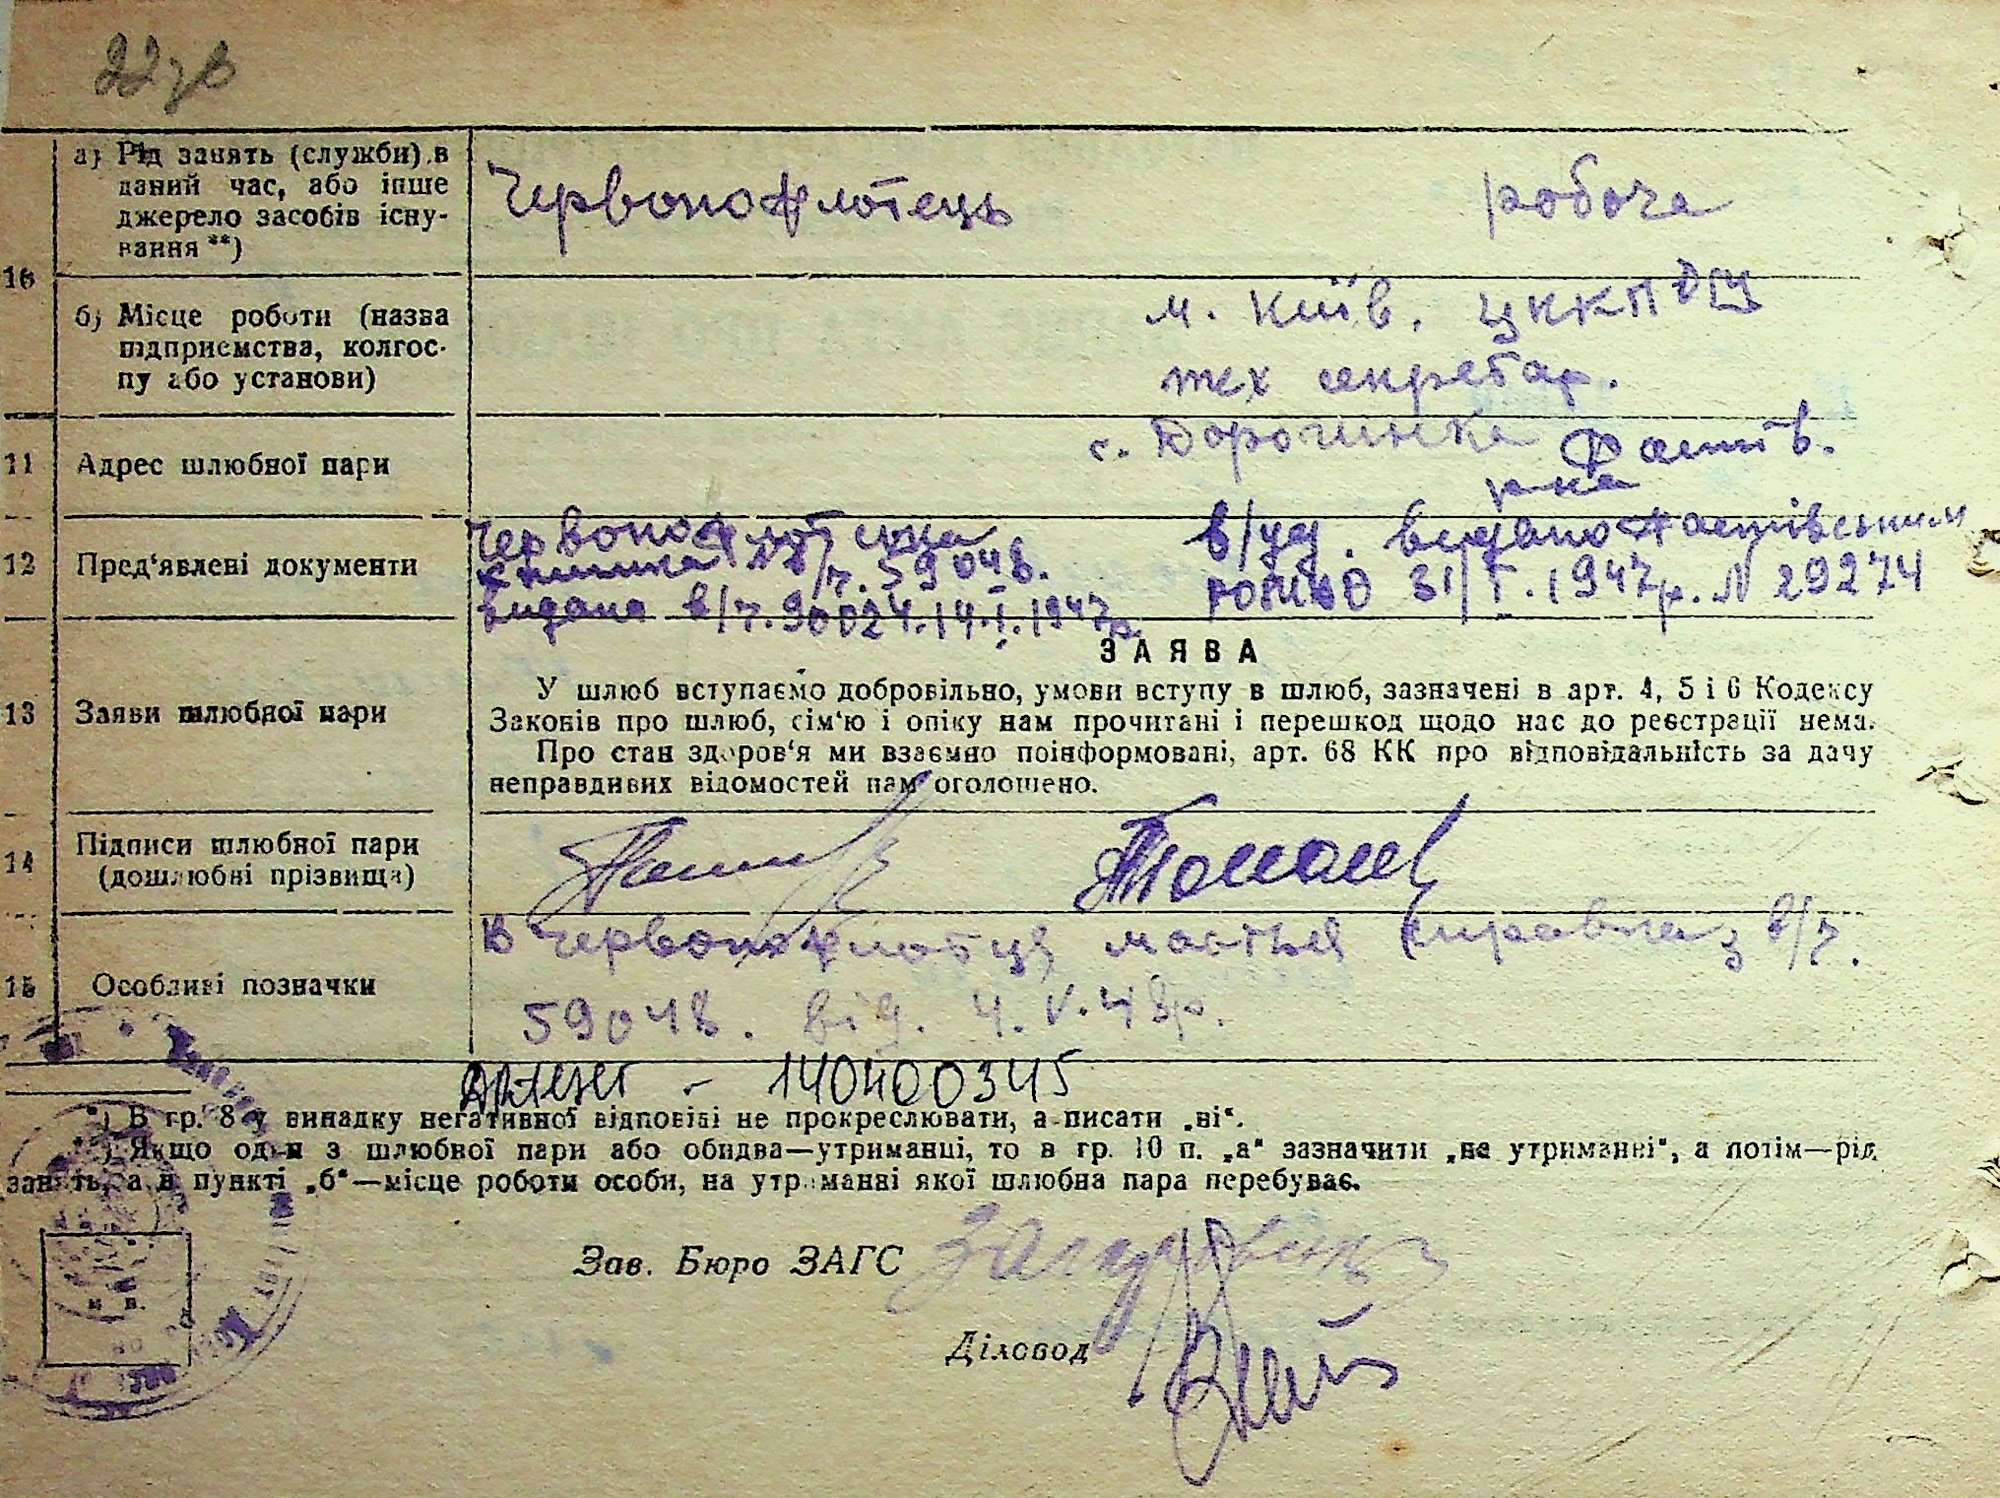 22зв
10
а) Рід занять (служби) в
даний час, або інше
джерело засобів існу-
вання **)
Червонофлотець
робоча
б) Місце роботи (назва
підприємства, колгос-
пу або установи)
м. Київ. ЦККП
тех секретар.
11
Адрес шлюбної пари
с. Дорогинка Фастів.
р-на
12
Пред'явлені документи
Червонофлотська
книжка в/ч. 59048.
видана в/ч. 90024. 14.I.1947р.
в/уд. видано Фастівським
31/I. 1947р. N 29274
13
Заяви шлюбної пари
ЗАЯВА
У шлюб вступаємо добровільно, умови вступу в шлюб, зазначені в арт. 4, 5 і 6 Кодексу
Законів про шлюб, сім'ю і опіку нам прочитані і перешкод щодо нас до реєстрації нема.
Про стан здоров'я ми взаємно поінформовані, арт. 68 КК про відповідальність за дачу
неправдивих відомостей нам оголошено.
14
Підписи шлюбної пари
(дошлюбні прізвища)
15
Особливі позначки
в Червонофлотця мається справка з в/ч.
59048. від. 4. V. 48р.
- 140400345
*) В гр. 8 у винадку негативної відповіві не прокреслювати, а писати „ні“.
) Якщо один з шлюбної пари або обидва—утриманці, то в гр. 10 п. „а“ зазначити „на утриманні“, а потім—рід
занять, а в пункті „б“—місце роботи особи, на утриманні якої шлюбна пара перебуває.
Зав. Бюро ЗАГС
Діловод
м. п.